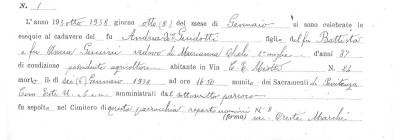 N. 1
L'anno 193otto 1938 giorno otto (8) del mese di Gennaio si sono celebrate le
esequie al cadavere del fu Andrea Guidotti figlio del fu Battista
e fu Anna vedovo di Marianna 2° moglie d'anni 87
di condizione possidente agricoltore abitante in Via N. 12
morto il dì sei (6) Gennaio 1938 ad ore 16.50 munito dei Sacramenti di Penitenza
Com. Estr. U. amministrati dal sottoscritto parroco
fu sepolto nel Cimitero di questa parrocchia reparto uomini N° 8
(Roma) sac. Oreste Marchi